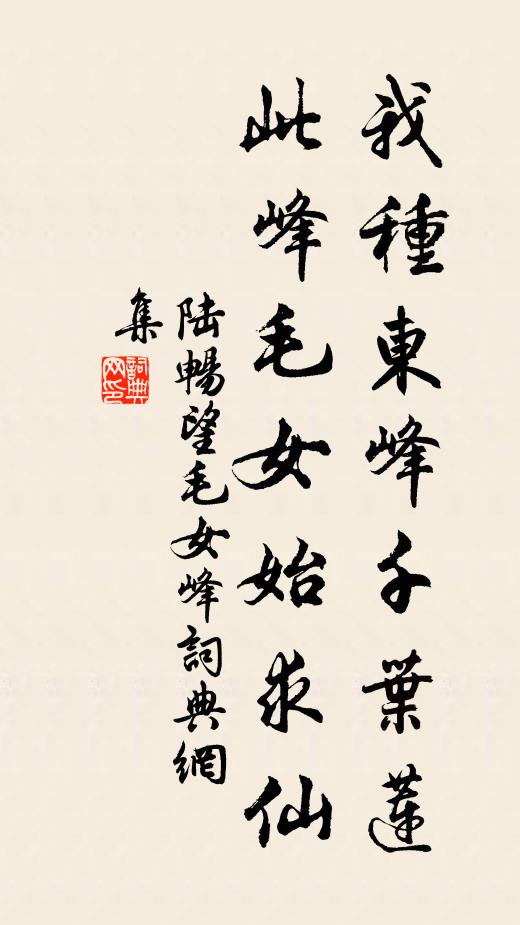 我種東峰千葉蓮
此峰毛女始求仙
陸暢望毛女峰詞典網
集
詞典
网印